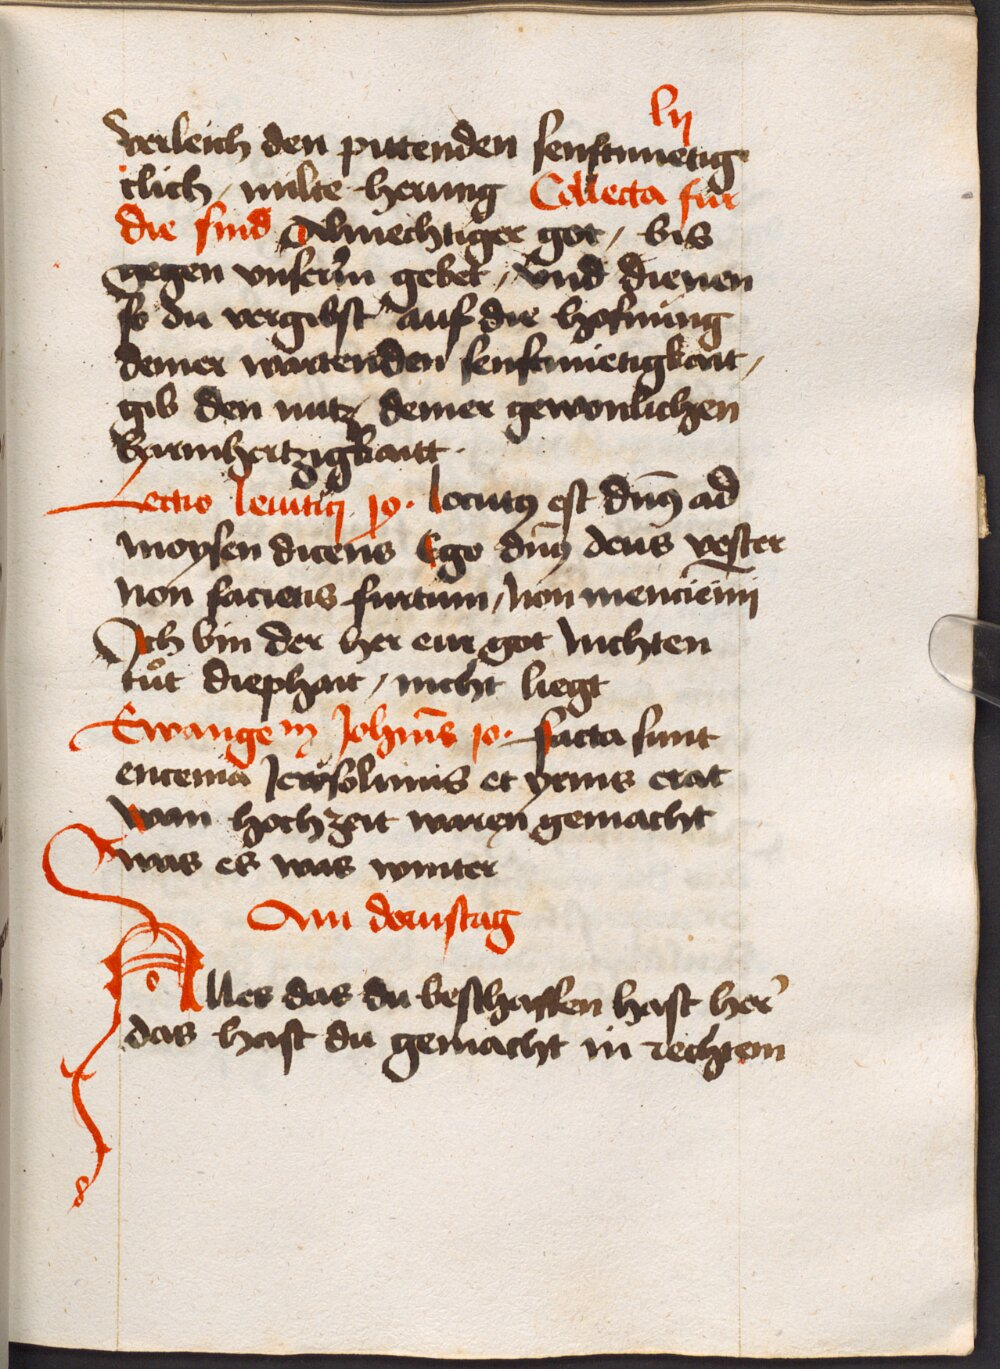 lij
verleich den pittenden senftmuetig
clich / milte herung Collecta für
die sind Almechtiger got / bis
gegen vnserm gebet / vnd dienen
so du vergibst auf die hofnung
deiner wartenden senftmuetigkait /
gib den nutz deiner gewonlichen
Barmhertzigkaitt .
Lectio leuitici xo . locutꝯ est dn̄s ad
moysen dicens Ego dn̄s deus vester
non facietis furtum / non menciemi
Ich bin der her eur got Nichten
tuͦt diephait / nicht liegt
Ewangem Johan̄s xo . facta sunt
encenia Jerosolimis et yems erat
wan hochzeit waren gemacht
was es was winter
Am dornstag
Alles das du beschaffen hast her
das hast du gemacht in rechtem